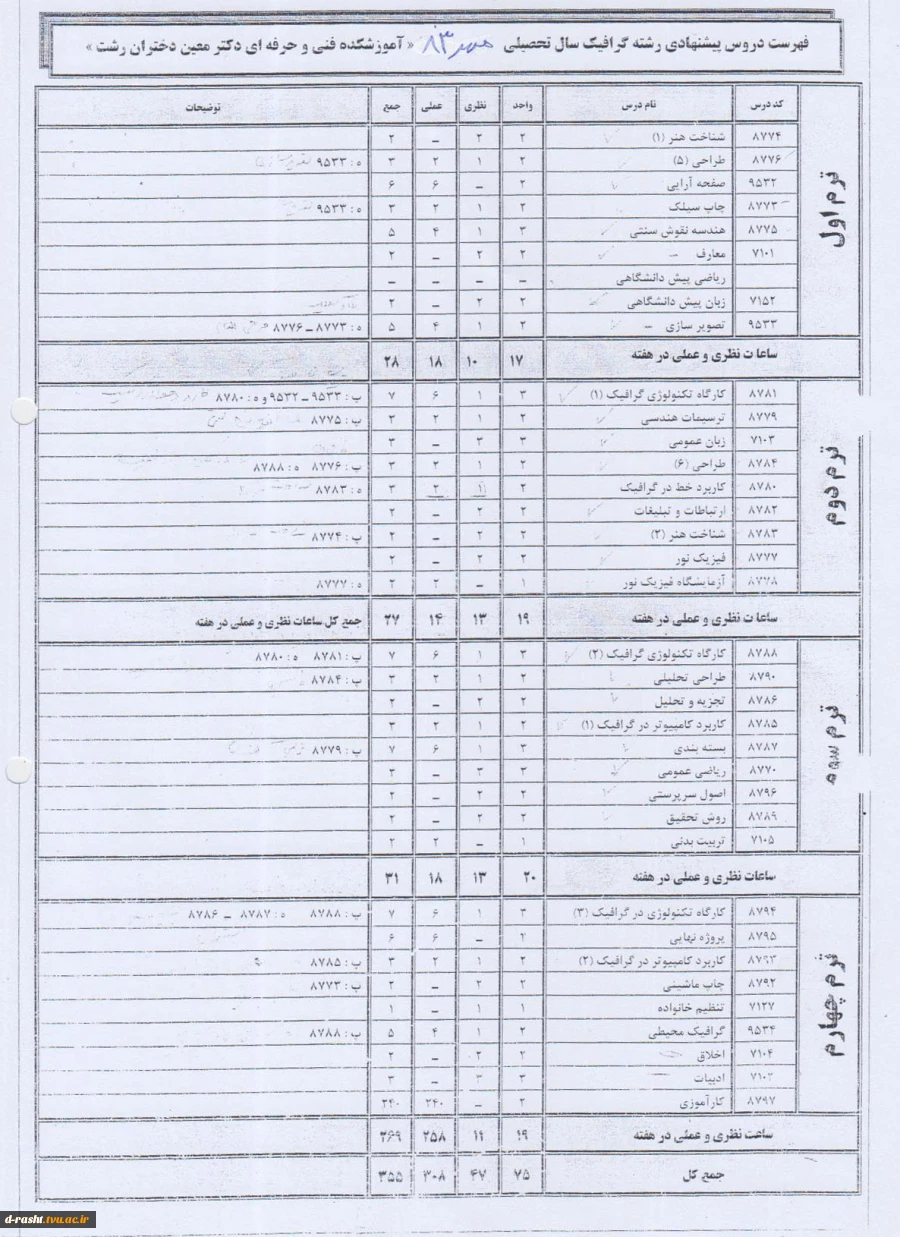 فهرست دروس پیشنهادی رشته گرافیک سال تحصیلی مهر ۸۳ « آموزشکده فنی و حرفه ای دکتر معین دختران رشت »
کد درس نام درس واحد نظری عملی جمع توضیحات
ترم اول
۸۷۷۴ شناخت هنر (۱) ۲ ۲ – ۲
۸۷۷۶ طراحی (۵) ۲ ۱ ۲ ۳ ه : ۹۵۳۳
۹۵۳۲ صفحه آرایی ۲ – ۶ ۶
۸۷۷۳ چاپ سیلک ۲ ۱ ۲ ۳ ه : ۹۵۳۳
۸۷۷۵ هندسه نقوش سنتی ۳ ۱ ۴ ۵
۷۱۰۱ معارف ۲ ۲ – ۲
ریاضی پیش دانشگاهی – – – –
۷۱۵۲ زبان پیش دانشگاهی ۲ ۲ – ۲
۹۵۳۳ تصویر سازی ۲ ۱ ۴ ۵ ه : ۸۷۷۳ – ۸۷۷۶
ساعات نظری و عملی در هفته ۱۷ ۱۰ ۱۸ ۲۸
ترم دوم
۸۷۸۱ کارگاه تکنولوژی گرافیک (۱) ۳ ۱ ۶ ۷ پ : ۹۵۳۳ – ۹۵۳۲ و ه : ۸۷۸۰
۸۷۷۹ ترسیمات هندسی ۲ ۱ ۲ ۳ پ : ۸۷۷۵
۷۱۰۳ زبان عمومی ۳ ۳ – ۳
۸۷۸۴ طراحی (۶) ۲ ۱ ۲ ۳ پ : ۸۷۷۶ ه : ۸۷۸۸
۸۷۸۰ کاربرد خط در گرافیک ۲ ۱ ۲ ۳ ه : ۸۷۸۳
۸۷۸۲ ارتباطات و تبلیغات ۲ ۲ – ۲
۸۷۸۳ شناخت هنر (۲) ۲ ۲ – ۲ پ : ۸۷۷۴
۸۷۷۷ فیزیک نور ۲ ۲ – ۲
۸۷۷۸ آزمایشگاه فیزیک نور ۱ – ۲ ۲ ه : ۸۷۷۷
ساعات نظری و عملی در هفته ۱۹ ۱۳ ۱۴ ۲۷ جمع کل ساعات نظری و عملی در هفته
ترم سوم
۸۷۸۸ کارگاه تکنولوژی گرافیک (۲) ۳ ۱ ۶ ۷ پ : ۸۷۸۱ ه : ۸۷۸۰
۸۷۹۰ طراحی تحلیلی ۲ ۱ ۲ ۳ پ : ۸۷۸۴
۸۷۸۶ تجزیه و تحلیل ۲ ۲ – ۲
۸۷۸۵ کاربرد کامپیوتر در گرافیک (۱) ۲ ۱ ۲ ۳
۸۷۸۷ بسته بندی ۳ ۱ ۶ ۷ پ : ۸۷۷۹
۸۷۷۰ ریاضی عمومی ۳ ۳ – ۳
۸۷۹۶ اصول سرپرستی ۲ ۲ – ۲
۸۷۸۹ روش تحقیق ۲ ۲ – ۲
۷۱۰۵ تربیت بدنی ۱ – ۲ ۲
ساعات نظری و عملی در هفته ۲۰ ۱۳ ۱۸ ۳۱
ترم چهارم
۸۷۹۴ کارگاه تکنولوژی در گرافیک (۳) ۳ ۱ ۶ ۷ پ : ۸۷۸۸ ه : ۸۷۸۷ – ۸۷۸۶
۸۷۹۵ پروژه نهایی ۲ – ۶ ۶
۸۷۹۳ کاربرد کامپیوتر در گرافیک (۲) ۲ ۱ ۲ ۳ پ : ۸۷۸۵
۸۷۹۲ چاپ ماشینی ۲ ۲ – ۲ پ : ۸۷۷۳
۷۱۲۷ تنظیم خانواده ۱ ۱ – ۱
۹۵۳۴ گرافیک محیطی ۲ ۱ ۴ ۵ پ : ۸۷۸۸
۷۱۰۴ اخلاق ۲ ۲ – ۲
۷۱۰۲ ادبیات ۳ ۳ – ۳
۸۷۹۷ کارآموزی ۲ – ۲۴۰ ۲۴۰
ساعت نظری و عملی در هفته ۱۹ ۱۱ ۲۵۸ ۲۶۹
جمع کل ۷۵ ۴۷ ۳۰۸ ۳۵۵
d-rasht.tvu.ac.ir